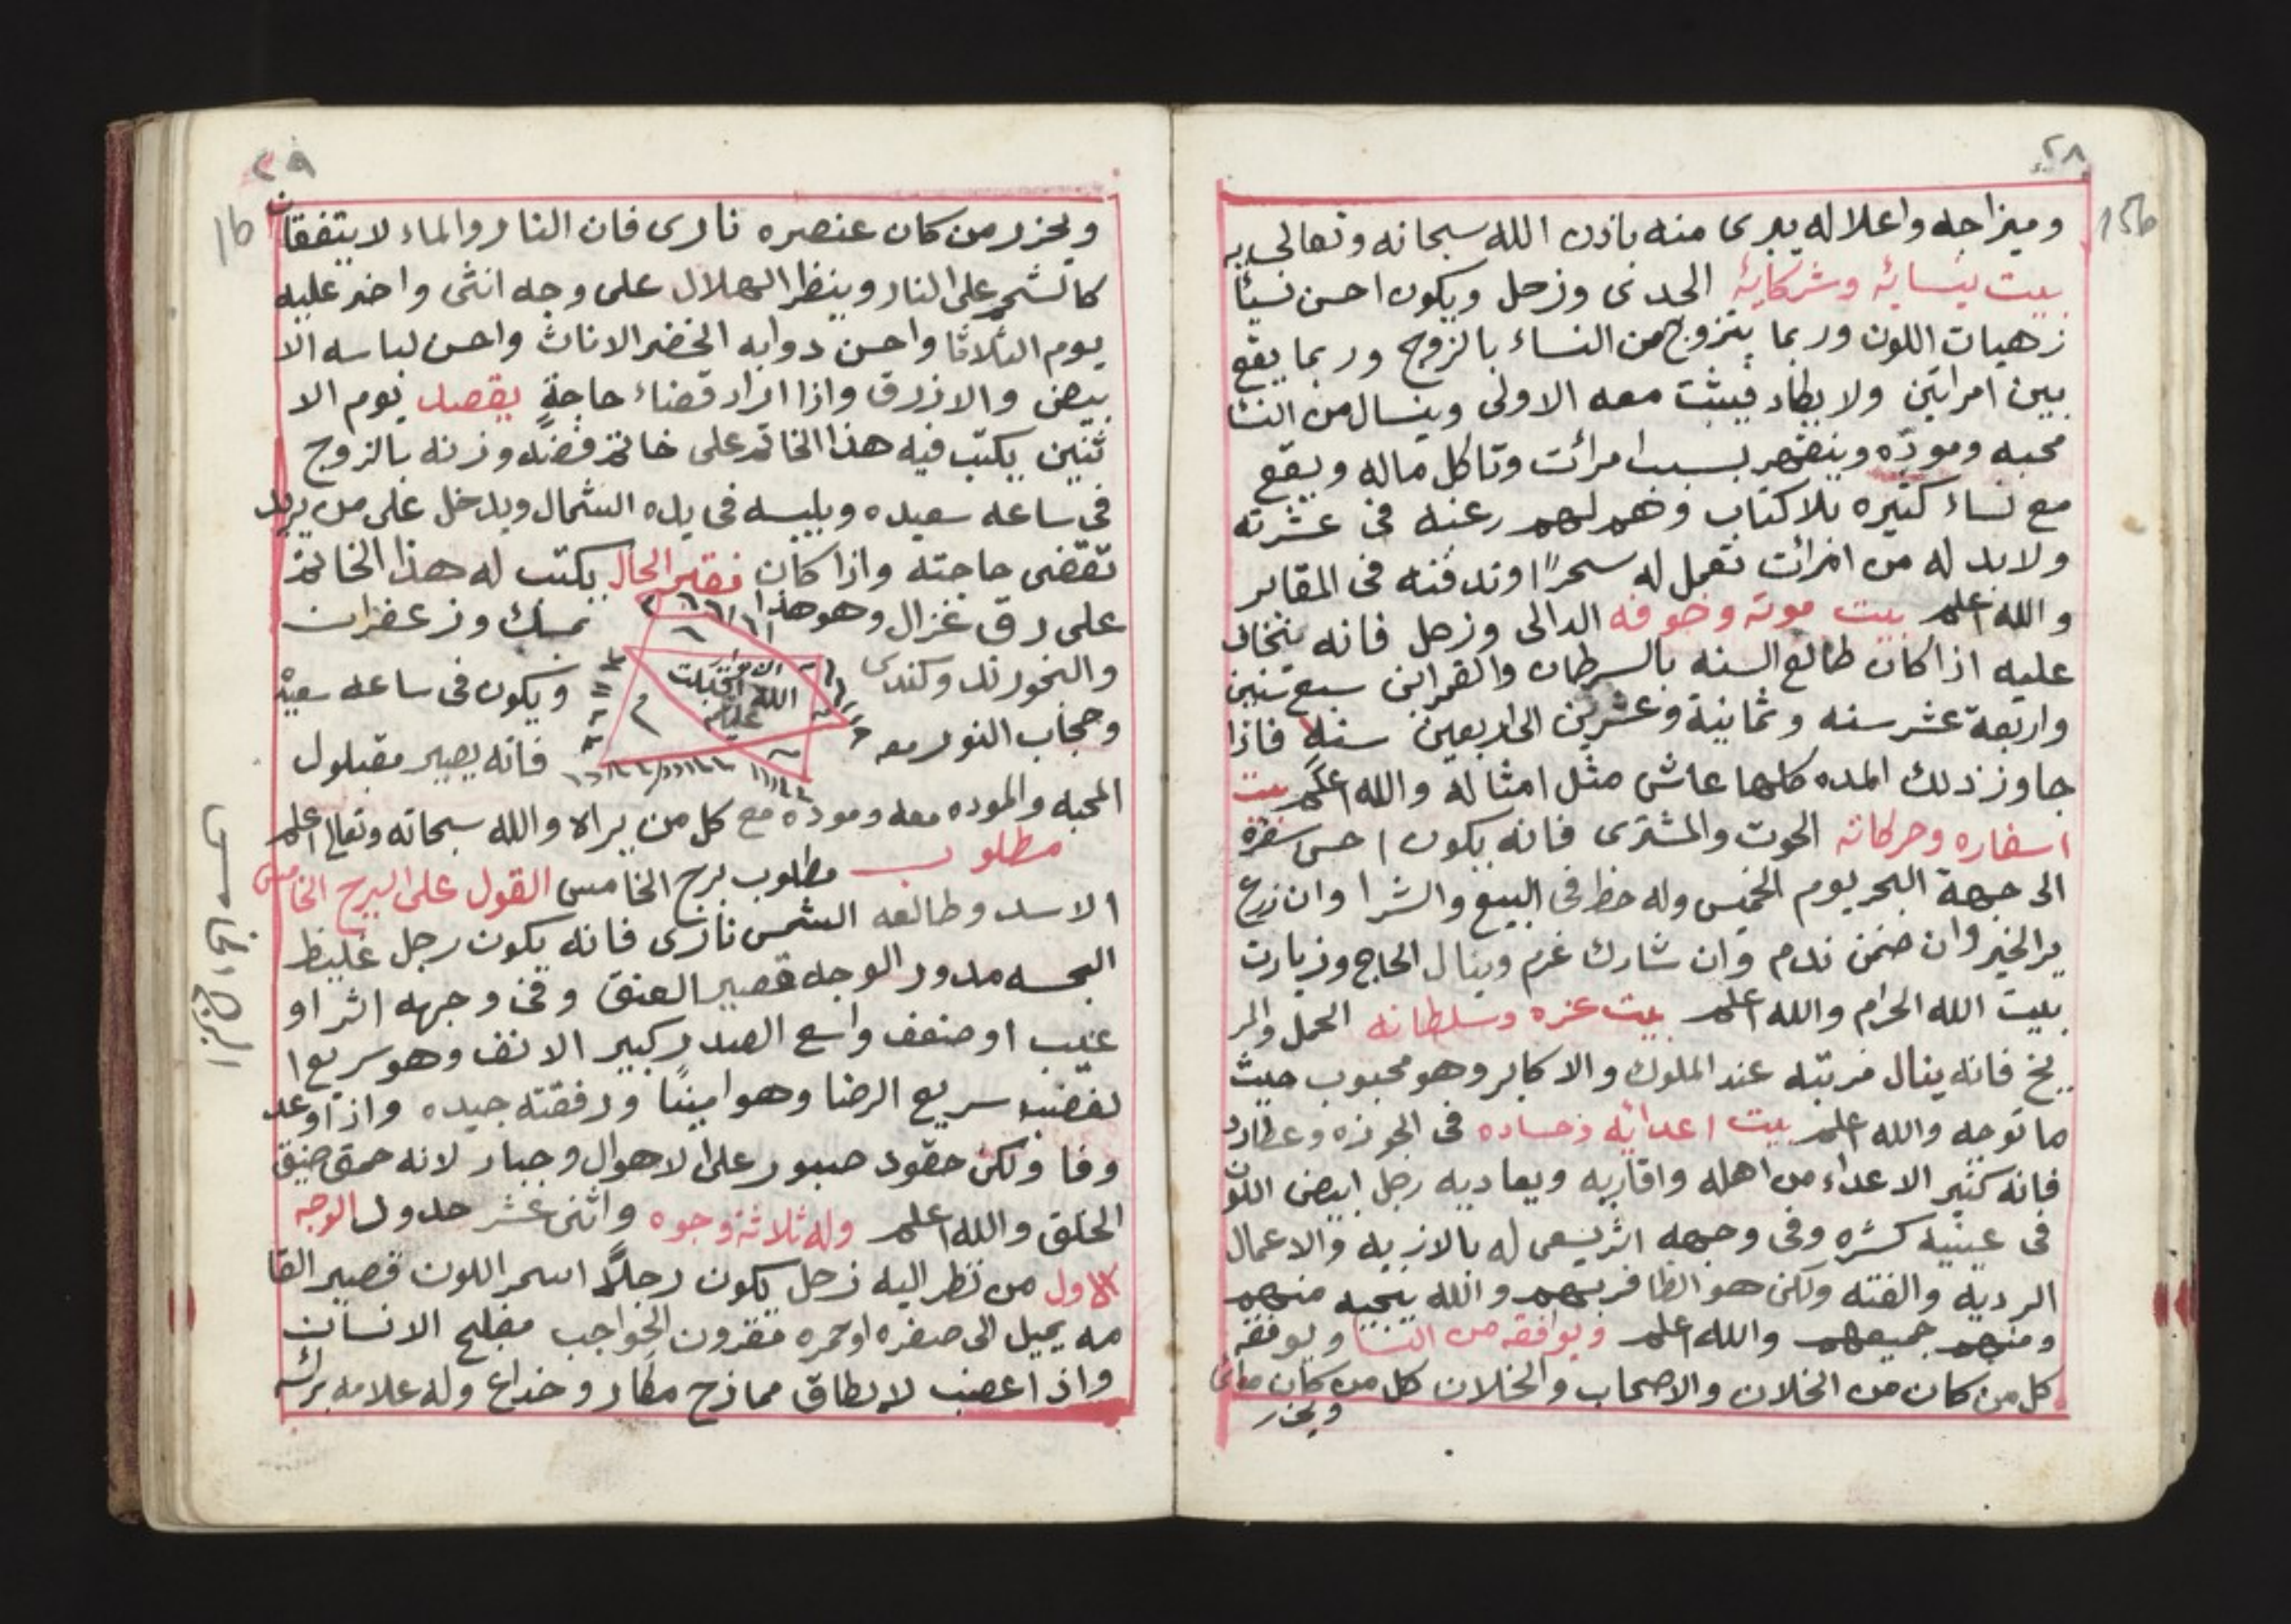 ٢٨
15b
وميزاجه واعلاله يبرى منه باذن الله سبحانه وتعالى به
بيت نسايه وشركايه الجدى وزحل ويكون احسن نسيا
زهيات اللون وربما يتزوج من النساء بالزوج وربما يقع
بين امراتين ولا بطاد فيبثت معه الاولى وينال من النسا
محبه ومودّه وينضهر بسبب امرائت وتاكل ماله ويقع
مع نساء كثيره بلا كتاب وهم لهم رغبه فى عشرته
ولابد له من امرائت تعمل له سحرًا وتدفنه فى المقابر
والله اعلم بيت موته وخوفه الدالى وزحل فانه ينخاف
عليه اذا كان طالع السنه بالسرطان والقمر ابن سبع سنين
واربعة عشر سنه وثمانية وعشرين الى اربعين سنه فاذا
جاوز ذلك المده كلها عاش مثل امثاله والله اعلم بيت
اسفاره وحركاته الحوت والمشترى فانه يكون احسن سفره
الى جهة البحر يوم الخميس وله حظ فى البيع والشرا وان زرع
ير الخير وان ضمن ندم وان شارك غرم وينال الحاج وزيارت
بيت الله الحرام والله اعلم بيت عزه وسلطانه الحمل والمر
يخ فانه ينال مرتبه عند الملوك والاكابر وهو محبوب حيث
ما توجه والله اعلم بيت اعدايه وحساده فى الجوزه وعطارد
فانه كثير الاعداء من اهله واقاربه ويعاديه رجل ابيض اللون
فى عينيه كشره وفى وجهه اثر يسعى له بالازيه والاعمال
الرديه والفتنه ولكن هو الظافر بهم والله ينجيه منهم
ومنهم جميعهم والله اعلم ويوافقه من النسا ويوفقه
كل من كان من الخلان والاصحاب والخلان كل من كان مائى
ويحزر
٢٩
16
ويحزر من كان عنصره نارى فان النار والماء لا يتفقان
كالشحم على النار وينظر الهلال على وجه انثى واخر عليه
يوم الثلاثا واحسن دوابه الخضر الاناث واحسن لباسه الا
بيض والازرق واذا اراد قضاء حاجةٍ يقصد يوم الا
ثنين يكتب فيه هذا الخاتم على خاتم فضه وزنه بالزوج
فى ساعه سعيده ويلبسه فى يده الشمال ويدخل على من يريد
تقضى حاجته واذا كان فقير الحال يكتب له هذا الخاتم
على رق غزال وهو هذا بمسك وزعفران
والبخور ند وكندس ويكون فى ساعه سعيده
الله
وحجاب النور معه فانه يصير مقبلول
المحبه والموده معه ومودة مع كل من يراه والله سبحانه وتعالى اعلم
مطلوب مطلوب برج الخامس القول على البرج الخامس
الاسد وطالعه الشمس نارى فانه يكون رجل غليظ
البحسه مدور الوجه قصير العنق وفى وجهه اثر او
عيب او ضعف واسع الصدر كبير الانف وهو سريع ا
لغضب سريع الرضا وهو امينًا ورفقته جيده واذا وعد
وفا ولكن حقود صبور على الاهوال وجبار لانه حمق ضيق
الخلق والله اعلم وله ثلاثة وجوه واثنى عشر حدول الوجه
الاول من نظر اليه زحل يكون رجلًا اسمر اللون قصير القا
مه يميل الى صفره او حمره مقرون الحواجب مفلج الانسان
واذا اغضب لا يطاق ممازح مكار وخداع وله علامه بركبته